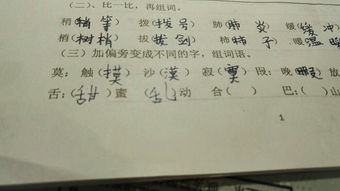 (二)、比一比，再组词。
稍(稍等) 拨(拨号) 肺(肺炎) 缓(缓冲
梢(树梢) 拔(拔剑) 柿(柿子) 暖(温暖
(三)加偏旁变成不同的字，组词语。
莫：触(摸) 沙(漠) 寂(寞) 叚：晚(暇) 放
舌：(甜)蜜 (乱)动 合( ) 巴：( )山
1